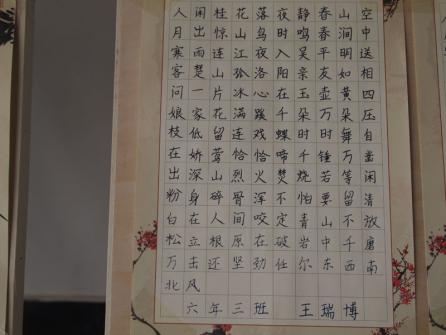 人闲桂花落夜静春山空
月出惊山鸟时鸣春涧中
寒雨连江夜入吴平明送
客楚山孤洛阳亲友如相
问一片冰心在玉壶黄四
娘家花满蹊千朵万朵压
枝低留连戏蝶时时舞自
在娇莺恰恰啼千锤万凿
出深山烈火焚烧若等闲
粉身碎骨浑不怕要留清
白在人间咬定青山不放
松立根原在破岩中千磨
万击还坚劲任尔东西南
北风
六年三班 王瑞博